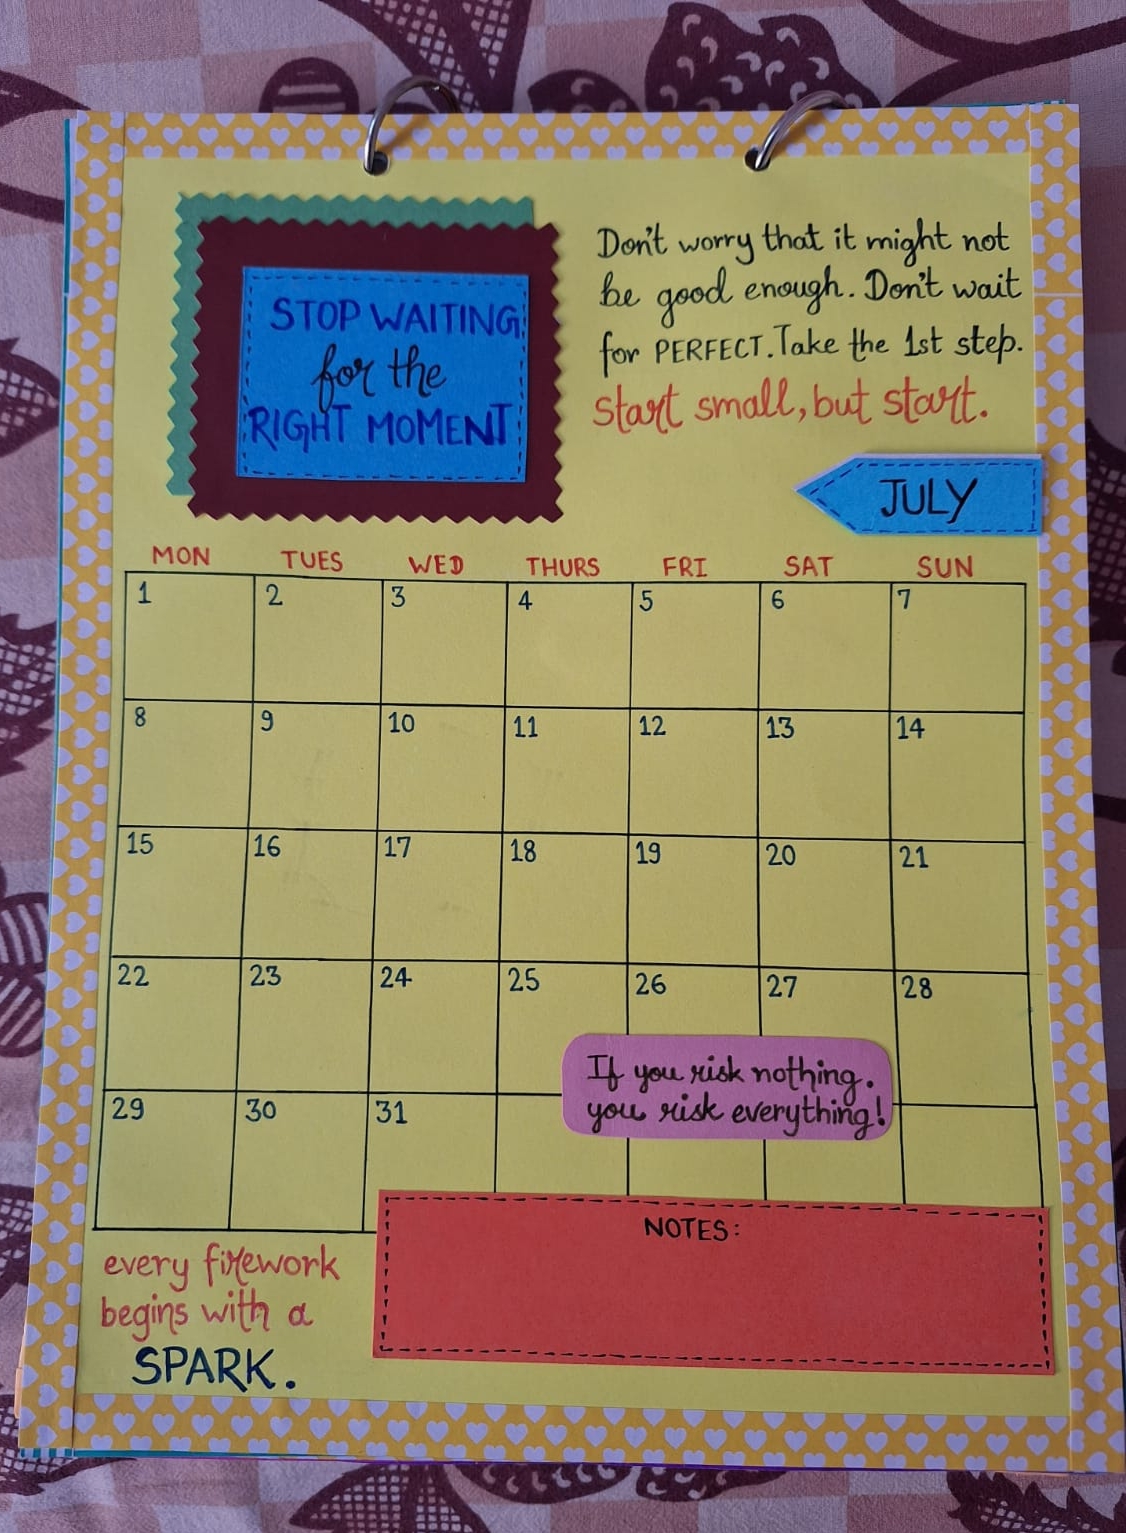 STOP WAITING
for the
RIGHT MOMENT
Don't worry that it might not
be good enough. Don't wait
for PERFECT. Take the 1st step.
start small, but start.
JULY
MON TUES WED THURS FRI SAT SUN
1 2 3 4 5 6 7
8 9 10 11 12 13 14
15 16 17 18 19 20 21
22 23 24 25 26 27 28
If you risk nothing.
you risk everything!
29 30 31
NOTES:
every firework
begins with a
SPARK.